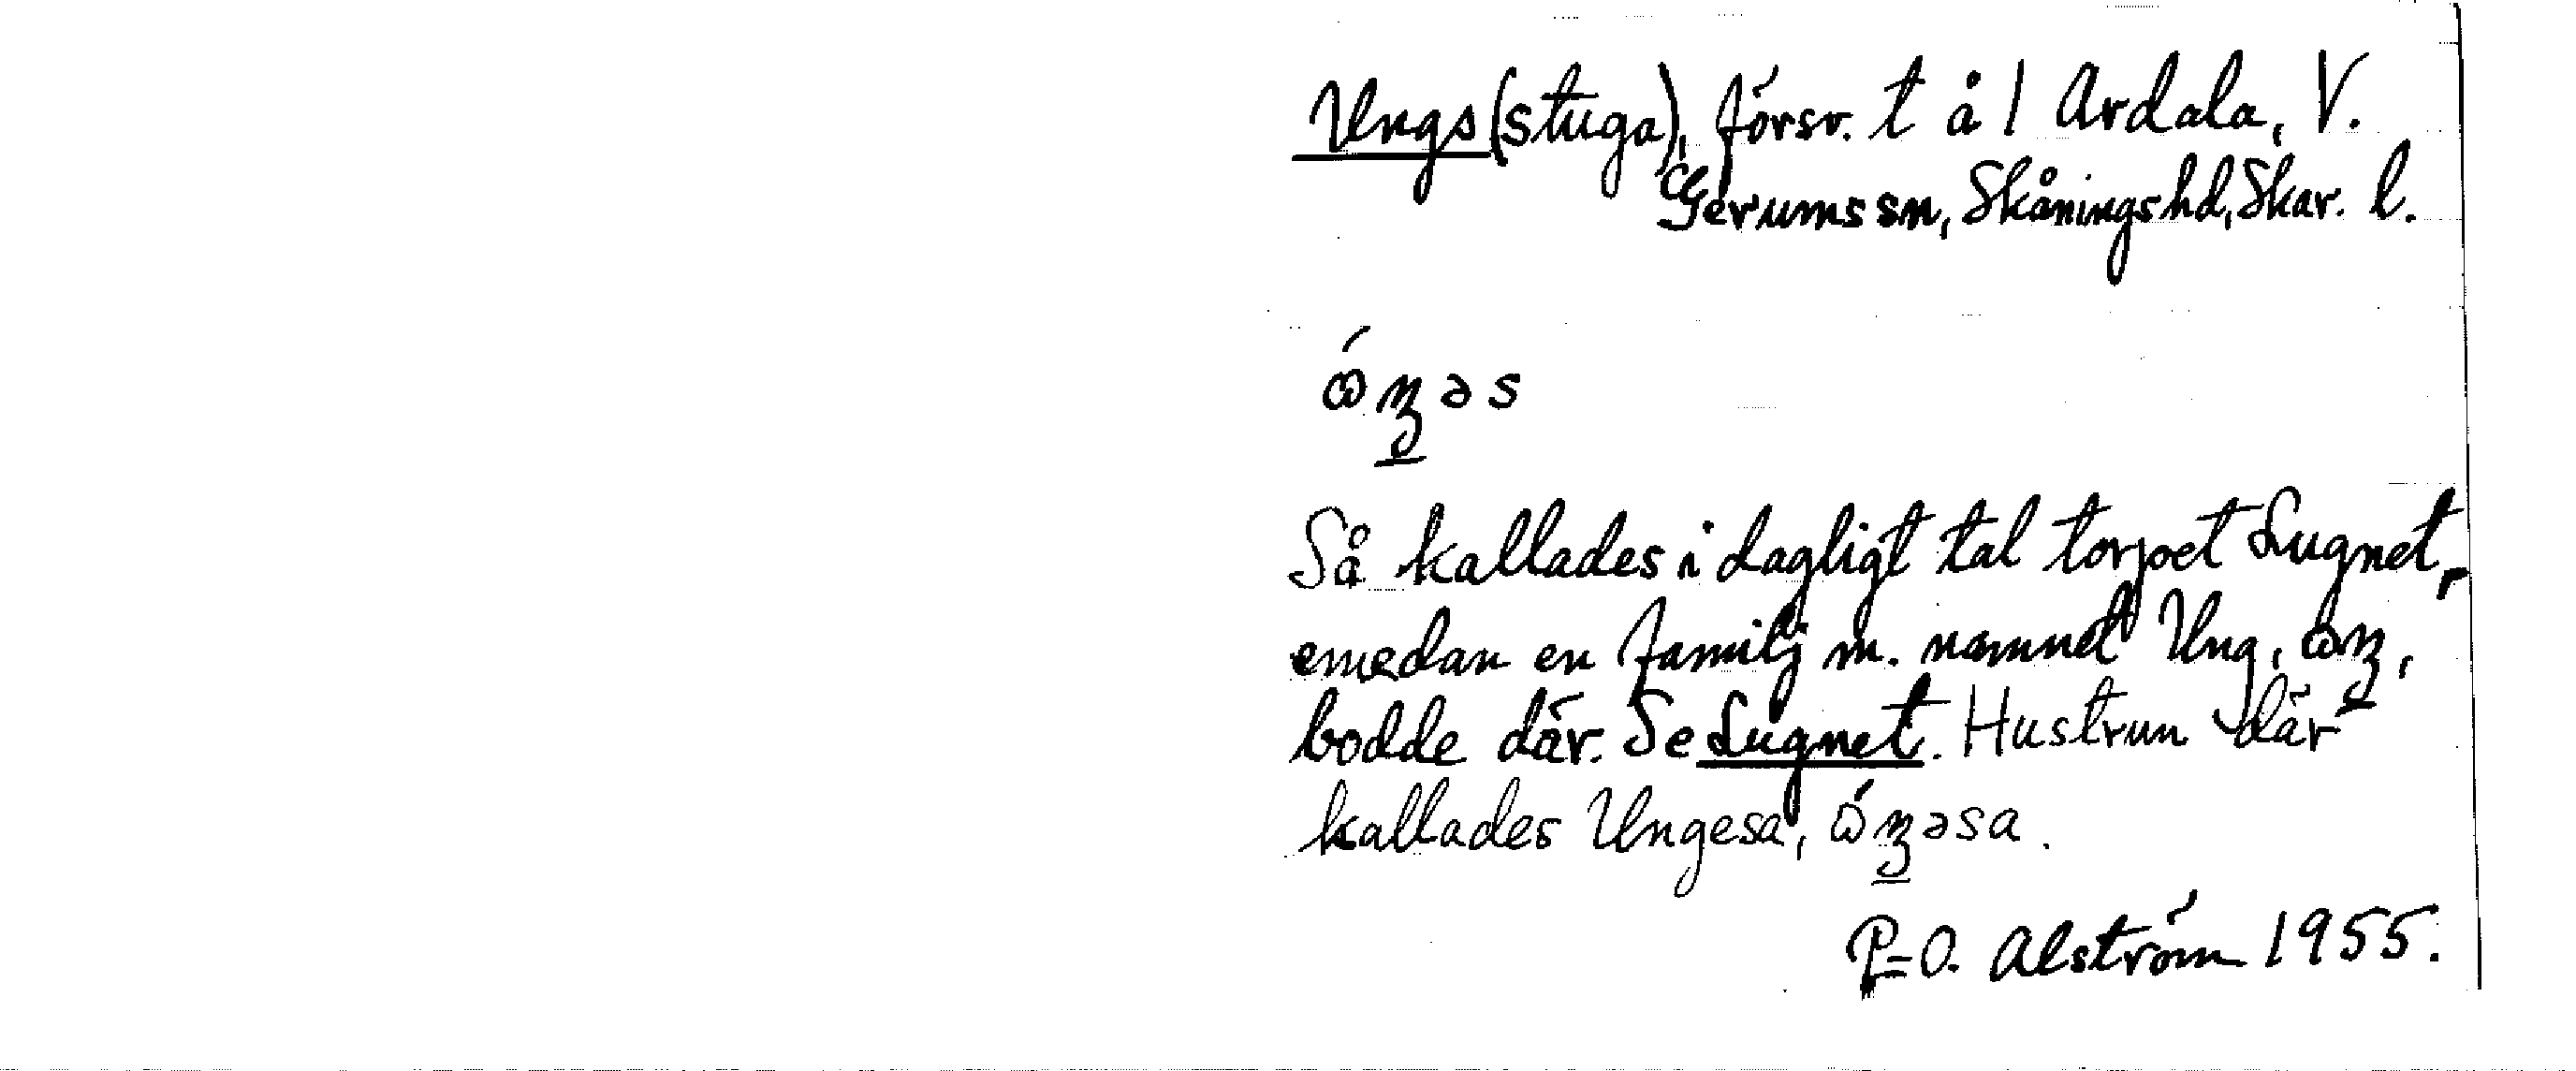 Ungs(stuga), försv. t å 1 Ardala, V.
Gerums sn, Skånings hd, Skar. l.
ώŋəs
Så kallades i dagligt tal torpet Lugnet,
emedan en familj m. namnet Ung, ωŋ,
bodde där. Se Lugnet. Hustrun där
kallades Ungesa, ώŋəsa.
P-O. Alström 1955.